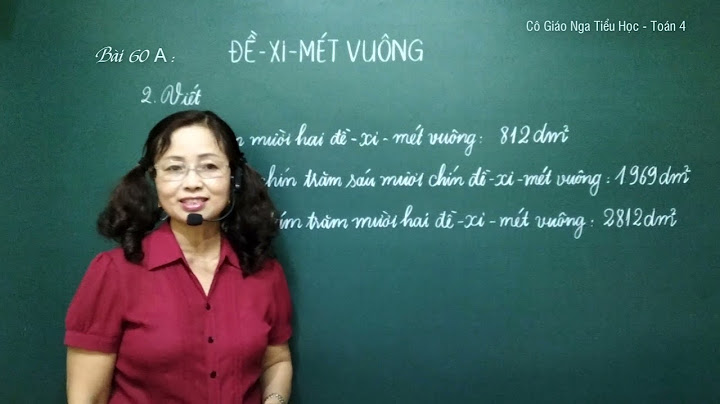 Cô Giáo Nga Tiểu Học - Toán 4
Bài 60 A : ĐỀ-XI-MÉT VUÔNG
2. Viết
mười hai đề-xi-mét vuông: 812dm²
trăm sáu mươi chín đề-xi-mét vuông: 1969dm²
trăm mười hai đề-xi-mét vuông: 2812dm²